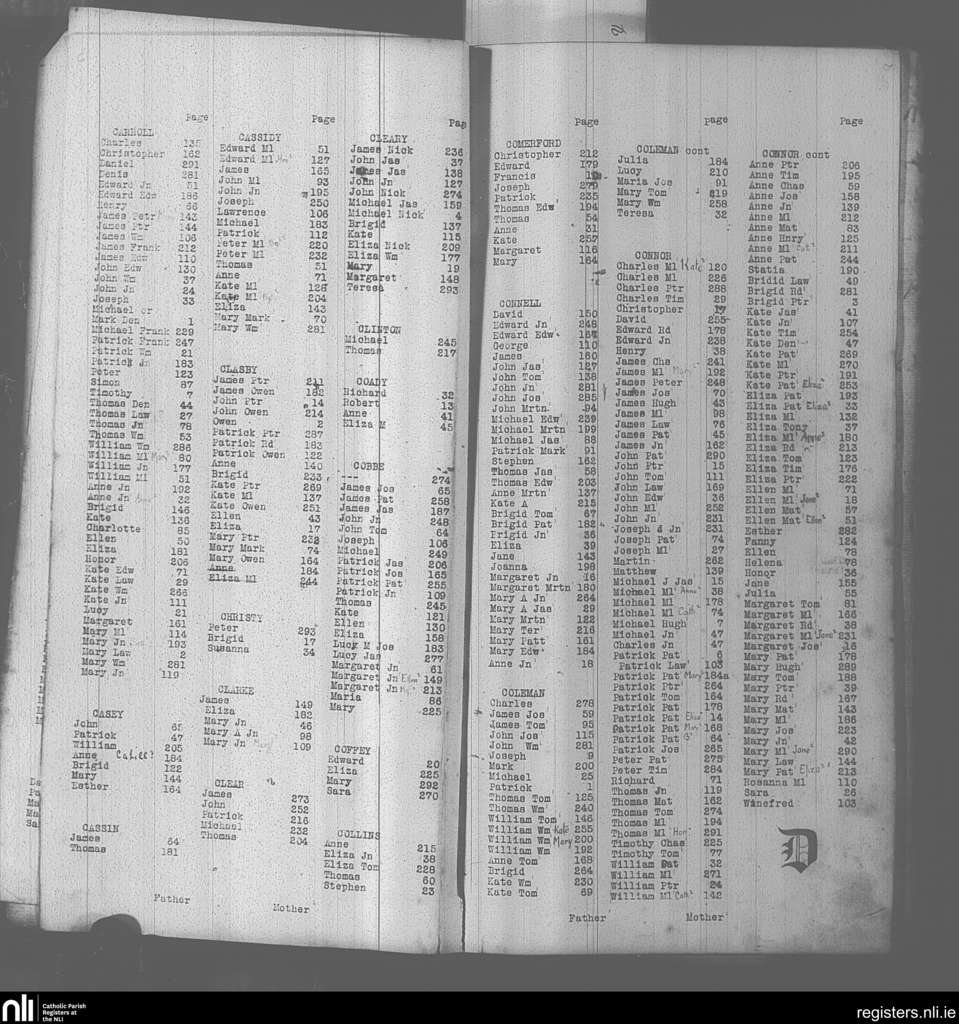 Page
CARROLL
Charles 135
Christopher 162
Daniel 291
Denis 281
Edward Jn 51
Edward Edw 186
Henry 66
James Petr 143
James Ptr 144
James Wm 106
James Frank 212
James Edw 110
John Edw 130
John Wm 37
John Jn 24
Joseph 33
Michael or
Mark Den 1
Michael Frank 229
Patrick Frank 247
Patrick Wm 21
Patrick Jn 183
Peter 123
Simon 87
Timothy 7
Thomas Den 44
Thomas Law 27
Thomas Jn 78
Thomas Wm 53
William Wm 286
William Ml 80
William Jn 177
William Ml 51
Anne Jn 192
Anne Jn 32
Brigid 146
Kate 136
Charlotte 85
Ellen 50
Eliza 181
Honor 206
Kate Edw 71
Kate Law 29
Kate Wm 266
Kate Jn 111
Lucy 21
Margaret 161
Mary Ml 114
Mary Jn 193
Mary Law 2
Mary Wm 281
Mary Jn 119
CASEY
John 65
Patrick 47
William 205
Anne Cahill 184
Brigid 122
Mary 144
Esther 164
CASSIN
James 64
Thomas 181
Father
Page
CASSIDY
Edward Ml 51
Edward Ml 127
James 165
John Ml 93
John Jn 195
Joseph 250
Lawrence 106
Michael 183
Patrick 112
Peter Ml 220
Peter Ml 232
Thomas 51
Anne 71
Kate Ml 128
Kate Ml 204
Eliza 143
Mary Mark 70
Mary Wm 281
CLASBY
James Ptr 211
James Owen 182
John Ptr 14
John Owen 214
Owen 2
Patrick Ptr 287
Patrick Rd 183
Patrick Owen 122
Anne 140
Brigid 233
Kate Ptr 269
Kate Ml 137
Kate Owen 251
Ellen 43
Eliza 17
Mary Ptr 232
Mary Mark 74
Mary Owen 164
Anne 184
Eliza Ml 244
CHRISTY
Peter 293
Brigid 17
Susanna 34
CLARKE
James 149
Eliza 182
Mary Jn 46
Mary A Jn 98
Mary Jn 109
CLEAR
James 273
John 252
Patrick 216
Michael 232
Thomas 204
Mother
Pag
CLEARY
James Nick 236
John Jas 37
James Jas 138
John Jn 127
John Nick 274
Michael Jas 159
Michael Nick 4
Brigid 137
Kate 115
Eliza Nick 209
Eliza Wm 177
Mary 19
Margaret 148
Teresa 293
CLINTON
Michael 245
Thomas 217
COADY
Richard 32
Robert 13
Anne 41
Eliza M 45
COBBE
--- 274
James Jos 65
James Pat 258
James Jas 187
John Jn 248
John Tom 64
Joseph 106
Michael 249
Patrick Jas 206
Patrick Jos 165
Patrick Pat 255
Patrick Jn 109
Thomas 245
Kate 121
Ellen 130
Eliza 158
Lucy M Jos 183
Lucy Jas 277
Margaret Jn 61
Margaret Jn Ellen 149
Margaret Jn 213
Maria 86
Mary 225
COFFEY
Edward 20
Eliza 225
Mary 292
Sara 270
COLLINS
Anne 215
Eliza Jn 38
Eliza Tom 228
Thomas 60
Stephen 23
Page
COMERFORD
Christopher 212
Edward 179
Francis
Joseph 279
Patrick 235
Thomas Edw 194
Thomas 54
Anne 31
Kate 257
Margaret 116
Mary 164
CONNELL
David 150
Edward Jn 248
Edward Edw 164
George 110
James 160
John Jas 127
John Tom 138
John Jn 281
John Jos 285
John Mrtn 94
Michael Edw 239
Michael Mrtn 199
Michael Jas 88
Patrick Mark 91
Stephen 162
Thomas Jas 58
Thomas Edw 203
Anne Mrtn 137
Kate A 215
Brigid Tom 67
Brigid Pat 182
Frigid Jn 36
Eliza 39
Jane 143
Joanna 198
Margaret Jn 16
Margaret Mrtn 180
Mary A Jn 264
Mary A Jas 29
Mary Mrtn 122
Mary Ter 216
Mary Patt 161
Mary Edw 184
Anne Jn 18
COLEMAN
Charles 278
James Jos 59
James Tom 95
John Jos 115
John Wm 281
Joseph 9
Mark 200
Michael 25
Patrick 1
Thomas Tom 125
Thomas Wm 240
William Tom 146
William Wm Kate 255
William Wm Mary 200
William Wm 192
Anne Tom 168
Brigid 264
Kate Wm 230
Kate Tom 69
Father
page
COLEMAN cont
Julia 184
Lucy 210
Maria Jos 91
Mary Tom 219
Mary Wm 258
Teresa 32
CONNOR
Charles Ml Kate 120
Charles Ml 226
Charles Ptr 288
Charles Tim 29
Christopher 17
David 255
Edward Rd 178
Edward Jn 238
Henry 38
James Chs 241
James Ml Mary 192
James Peter 248
James Jos 70
James Hugh 43
James Ml 98
James Law 76
James Pat 45
James Jn 162
John Pat 290
John Ptr 15
John Tom 111
John Law 169
John Edw 36
John Ml 252
John Jn 231
Joseph d Jn 231
Joseph Pat 74
Joseph Ml 27
Martin 262
Matthew 139
Michael J Jas 15
Michael Ml Anne 38
Michael Ml 178
Michael Ml Cath 74
Michael Hugh 7
Michael Jn 47
Charles Jn 47
Patrick Pat 6
Patrick Law 103
Patrick Pat Mary 184a
Patrick Ptr 264
Patrick Tom 164
Patrick Pat 178
Patrick Pat Eliza 14
Patrick Pat Mary 168
Patrick Pat 64
Patrick Jos 265
Peter Pat 275
Peter Tim 284
Richard 71
Thomas Jn 119
Thomas Mat 162
Thomas Tom 274
Thomas Ml 194
Thomas Ml Hon 291
Timothy Chas 225
Timothy Tom 77
William Pat 32
William Ml 271
William Ptr 24
William Ml Cath 142
Mother
Page
CONNOR cont
Anne Ptr 206
Anne Tim 195
Anne Chas 59
Anne Jos 158
Anne Jn 139
Anne Ml 212
Anne Mat 83
Anne Hnry 125
Anne Ml Cath 211
Anne Pat 244
Statia 190
Bridid Law 49
Brigid Rd 281
Brigid Ptr 3
Kate Jas 41
Kate Jn 107
Kate Tim 254
Kate Den 47
Kate Pat 269
Kate Ml 270
Kate Ptr 191
Kate Pat Eliza 253
Eliza Pat 193
Eliza Pat Eliza 33
Eliza Ml 132
Eliza Tony 37
Eliza Ml 180
Eliza Rd 213
Eliza Tom 123
Eliza Tim 176
Eliza Ptr 222
Ellen Ml 71
Ellen Ml Jane 18
Ellen Mat 57
Ellen Mat Ellen 51
Esther 282
Fanny 124
Ellen 78
Helena 78
Honor 36
Jane 155
Julia 55
Margaret Tom 81
Margaret Ml 166
Margaret Rd 38
Margaret Ml Jane 231
Margaret Jos 16
Mary Pat 178
Mary Hugh 289
Mary Tom 188
Mary Ptr 39
Mary Rd 167
Mary Mat 143
Mary Ml 186
Mary Jos 223
Mary Jn 42
Mary Ml Jane 290
Mary Law 144
Mary Pat Eliza 213
Rosanna Ml 110
Sara 26
Winefred 103
D
nli
Catholic Parish
Registers at
the NLI
registers.nli.ie